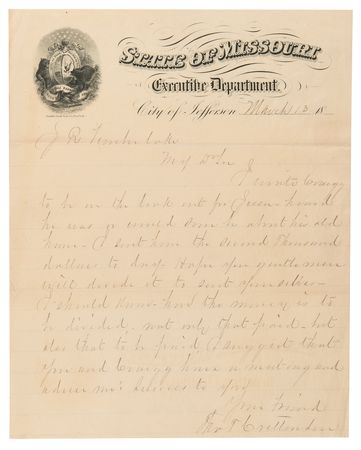 STATE OF MISSOURI
Executive Department.
City of Jefferson March 13 18
J R Timberlake
My D Sir
I write Craig
to be on the look out for Jesse - heard
he was or would soon be about his old
home - I sent him the second thousand
dollars to day. Hope you gentlemen
will decide it to suit yourselves -
I should know how the money is to
be divided, not only that paid - but
also that to be paid, I suggest that
you and Craig have a meeting and
advise me. Success to you
Your friend
Tho T Crittenden